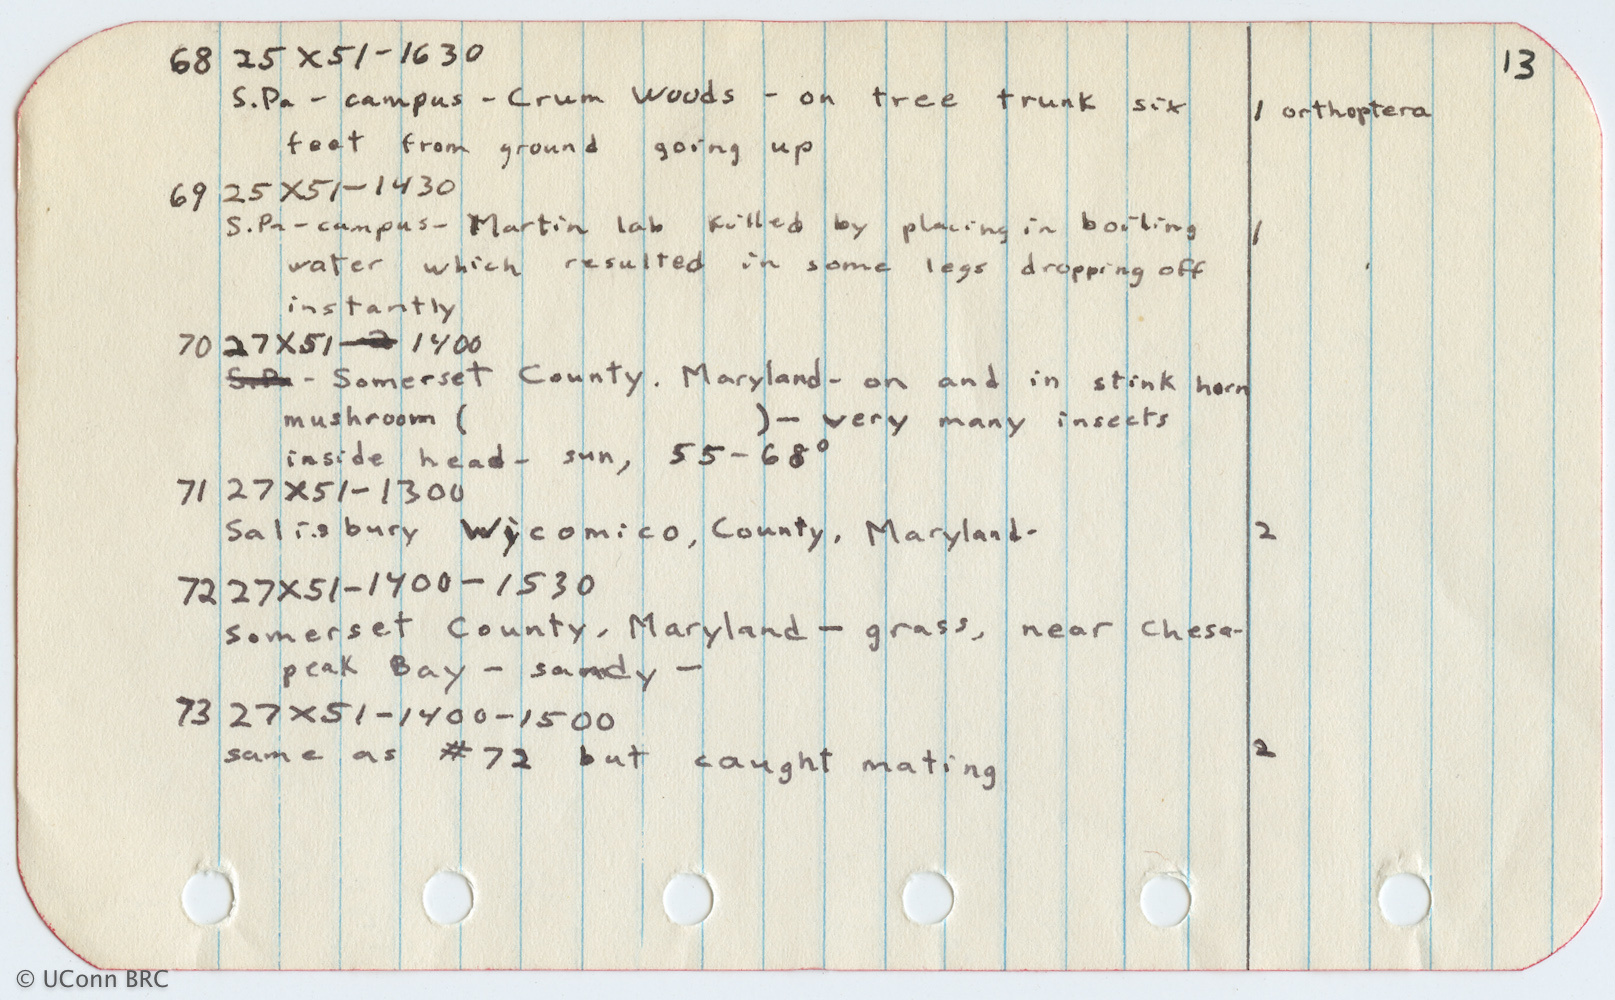 13
68 25 X 51 - 1630
S.Pa - campus - Crum Woods - on tree trunk six 1 orthoptera
feet from ground going up
69 25 X 51 - 1430
S.Pa - campus - Martin lab killed by placing in boiling 1
water which resulted in some legs dropping off
instantly
70 27 X 51 - 2 1400
S.Pa - Somerset County. Maryland - on and in stink horn
mushroom ( ) - very many insects
inside head - sun, 55-68°
71 27 X 51 - 1300
Salisbury Wicomico, County, Maryland - 2
72 27 X 51 - 1400 - 1530
Somerset County, Maryland - grass, near Chesa-
peak Bay - sandy -
73 27 X 51 - 1400 - 1500
same as #72 but caught mating 2
© UConn BRC